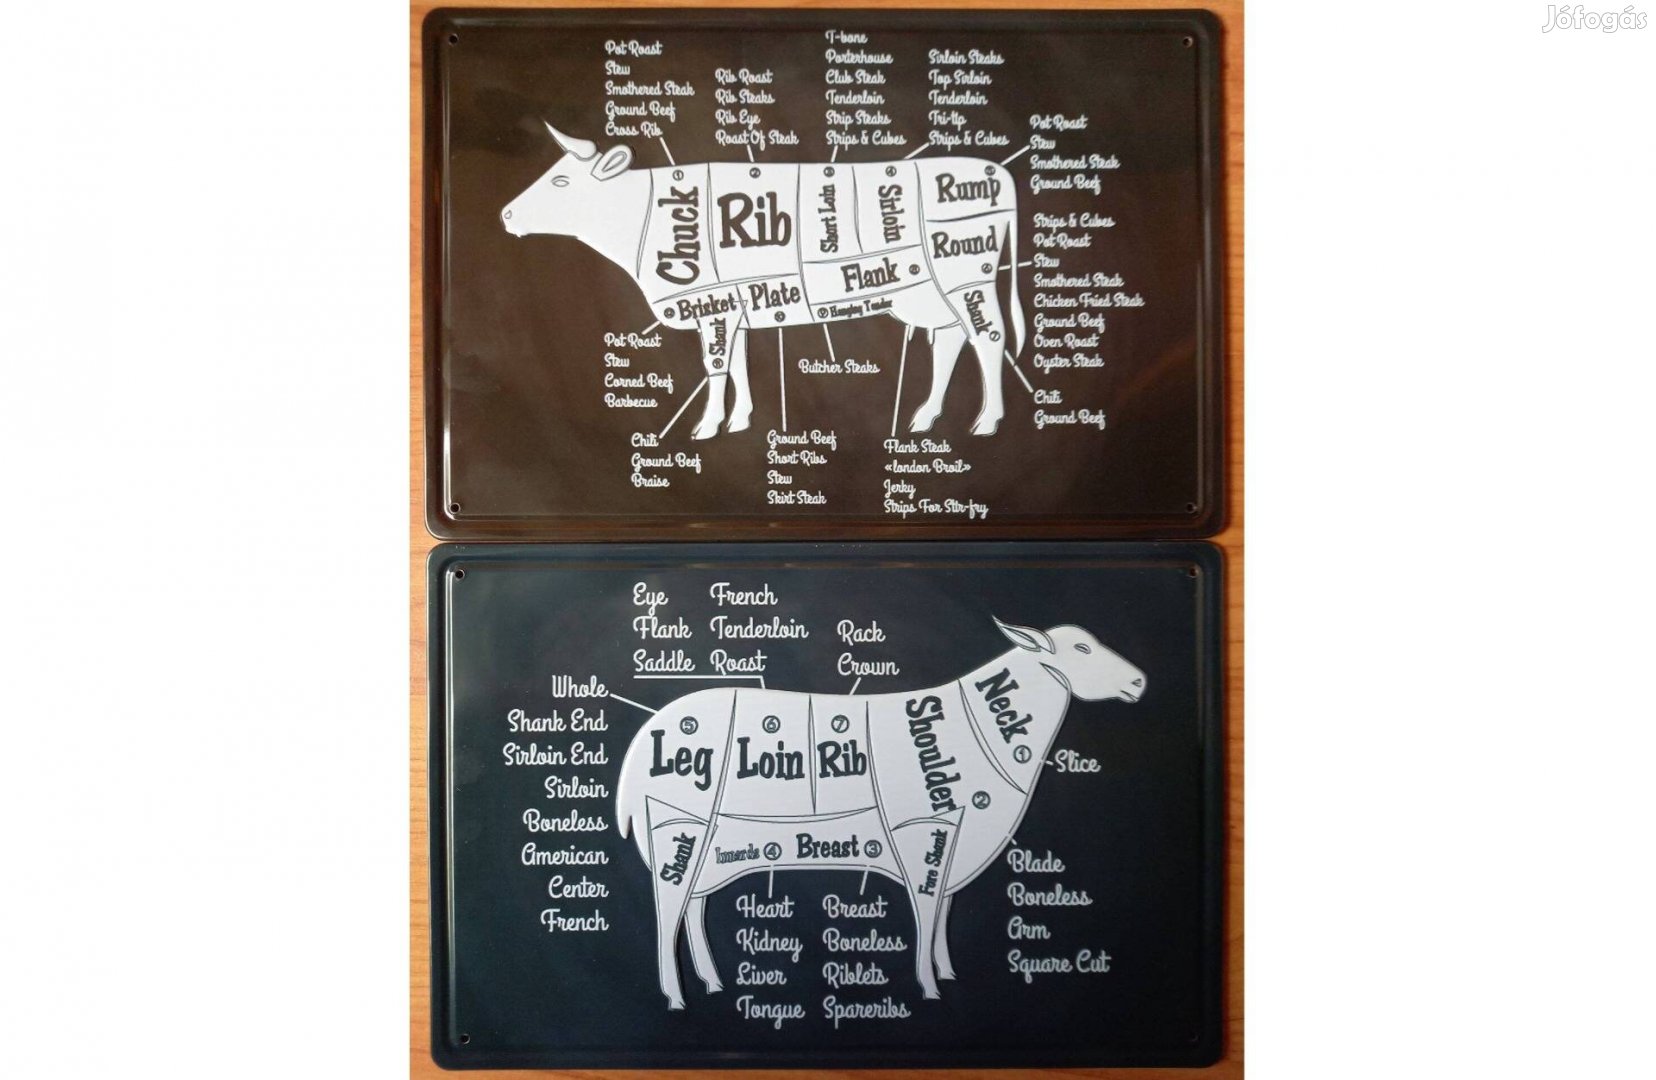 Jófogás
Pot Roast
Stew
Smothered Steak
Ground Beef
Cross Rib
Rib Roast
Rib Steaks
Rib Eye
Roast Of Steak
T-bone
Porterhouse
Club Steak
Tenderloin
Strip Steaks
Strips & Cubes
Sirloin Steaks
Top Sirloin
Tenderloin
Tri-tip
Strips & Cubes
Pot Roast
Stew
Smothered Steak
Ground Beef
Chuck
Rib
Short Loin
Sirloin
Rump
Round
Flank
Brisket
Plate
Hanging Tender
Shank
Shank
Strips & Cubes
Pot Roast
Stew
Smothered Steak
Chicken Fried Steak
Ground Beef
Oven Roast
Oyster Steak
Pot Roast
Stew
Corned Beef
Barbecue
Butcher Steaks
Chili
Ground Beef
Chili
Ground Beef
Braise
Ground Beef
Short Ribs
Stew
Skirt Steak
Flank Steak
«london Broil»
Jerky
Strips For Stir-fry
Eye French
Flank Tenderloin
Saddle Roast
Rack
Crown
Whole
Shank End
Sirloin End
Sirloin
Boneless
American
Center
French
Leg
5
Loin
6
Rib
7
Shoulder
2
Neck
1
Slice
Shank
Innards 4
Breast 3
Fore Shank
Heart
Kidney
Liver
Tongue
Breast
Boneless
Riblets
Spareribs
Blade
Boneless
Arm
Square Cut